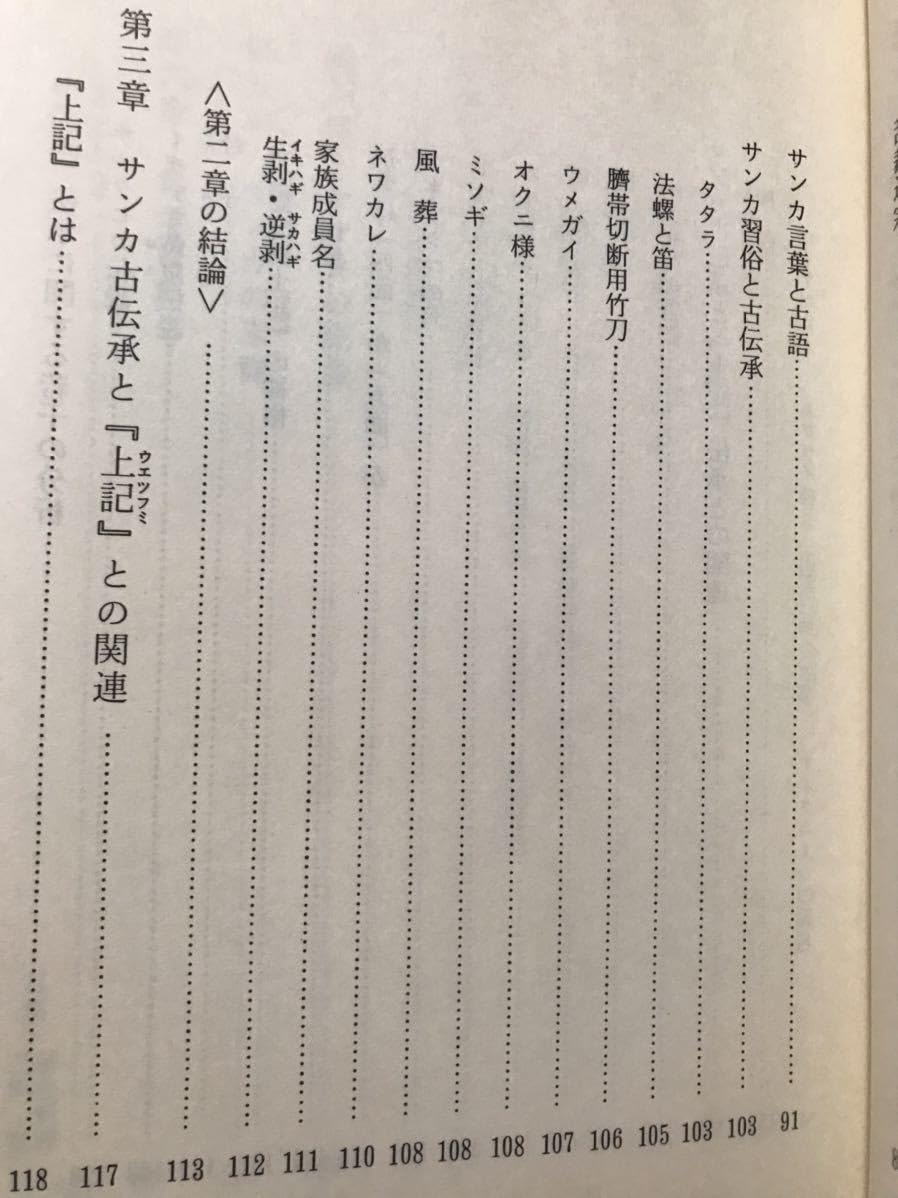 サンカ言葉と古語……91
サンカ習俗と古伝承……103
タタラ……103
法螺と笛……105
臍帯切断用竹刀……106
ウメガイ……107
オクニ様……108
ミソギ……108
風葬……108
ネワカレ……110
家族成員名……111
生剥・逆剥……112
イキハギ サカハギ
〈第二章の結論〉……113
第三章 サンカ古伝承と『上記』との関連……117
ウエツフミ
『上記』とは……118